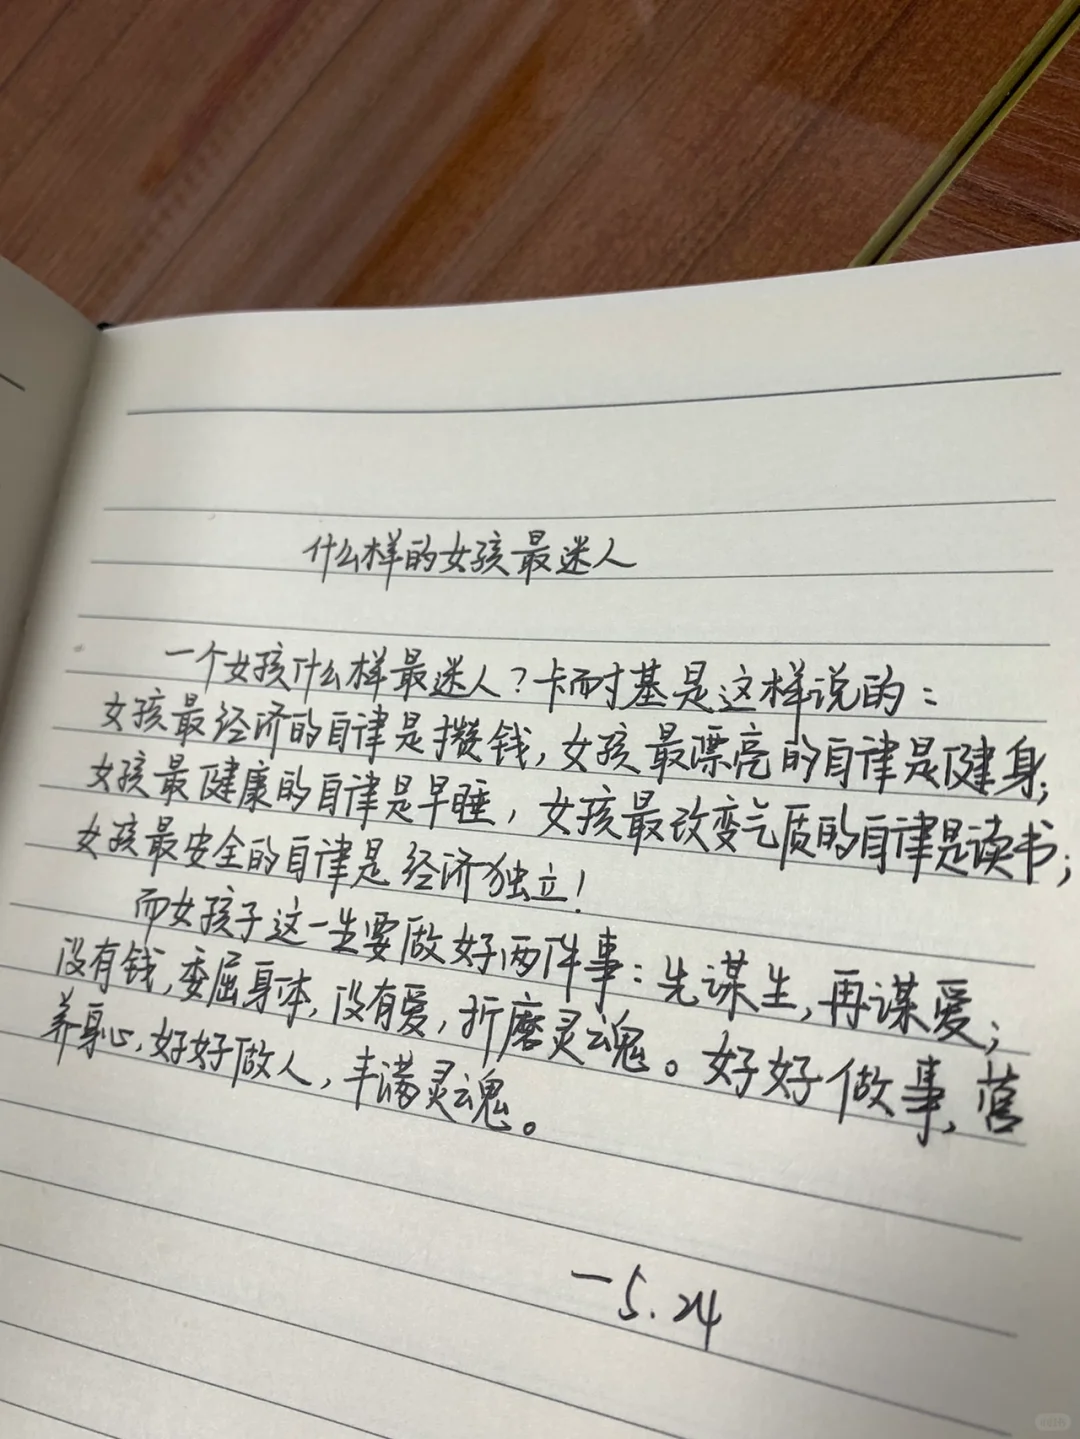 什么样的女孩最迷人
一个女孩什么样最迷人？卡耐基是这样说的：
女孩最经济的自律是攒钱，女孩最漂亮的自律是健身；
女孩最健康的自律是早睡，女孩最改变气质的自律是读书；
女孩最安全的自律是经济独立！
而女孩子这一生要做好两件事：先谋生，再谋爱；
没有钱，委屈身体，没有爱，折磨灵魂。好好做事，营
养身心，好好做人，丰满灵魂。
一5.24